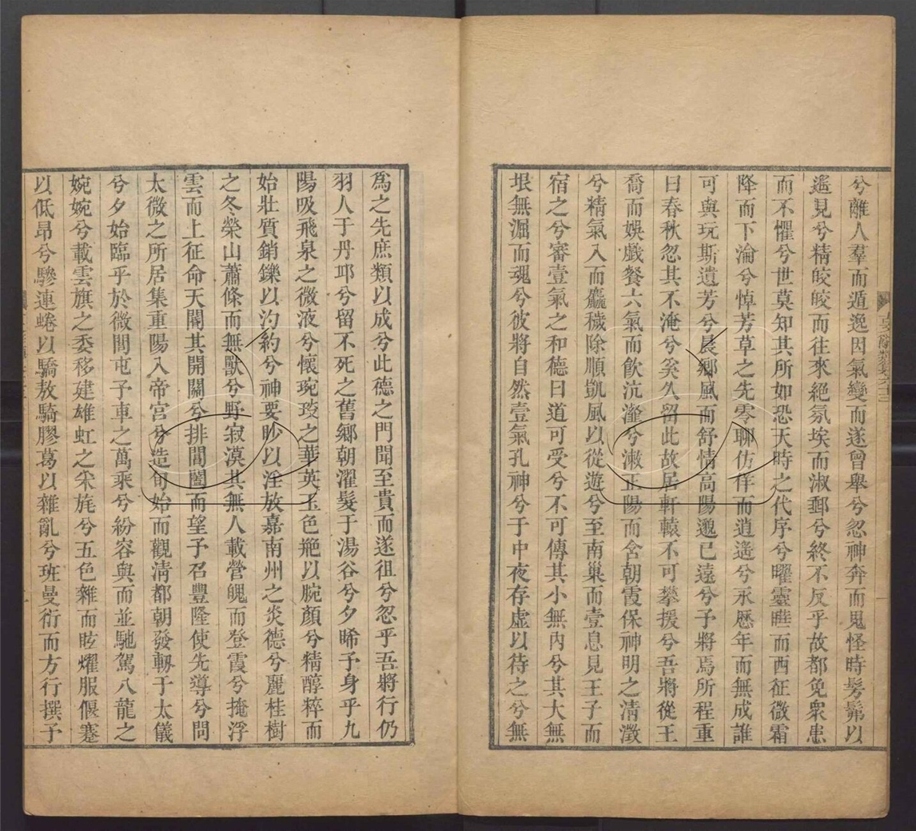 兮離人羣而遁逸因氣變而遂曾舉兮忽神奔而鬼怪時髣髴以
遙見兮精皎皎而往來絕氛埃而淑郵兮終不反乎故都免衆患
而不懼兮世莫知其所如恐天時之代序兮曜靈曄而西征微霜
降而下淪兮悼芳草之先零聊仿佯而逍遙兮永歷年而無成誰
可與玩斯遺芳兮晨鄉風而舒情高陽邈已遠兮予將焉所程重
曰春秋忽其不淹兮奚久留此故居軒轅不可攀援兮吾將從王
喬而娛戲餐六氣而飲沆瀣兮漱正陽而含朝霞保神明之清澂
兮精氣入而麤穢除順凱風以從遊兮至南巢而壹息見王子而
宿之兮審壹氣之和德曰道可受兮不可傳其小無內兮其大無
垠無淈而魂兮彼將自然壹氣孔神兮于中夜存虛以待之兮無
爲之先庶類以成兮此德之門聞至貴而遂徂兮忽乎吾將行仍
羽人于丹邱兮留不死之舊鄉朝濯髮于湯谷兮夕晞予身乎九
陽吸飛泉之微液兮懷琬琰之華英玉色頩以脕顏兮精醇粹而
始壯質銷鑠以汋約兮神要眇以淫放嘉南州之炎德兮麗桂樹
之冬榮山蕭條而無獸兮野寂漠其無人載營魄而登霞兮掩浮
雲而上征命天閽其開關兮排閶闔而望予召豐隆使先導兮問
太微之所居集重陽入帝宮兮造旬始而觀清都朝發軔于太儀
兮夕始臨乎於微閭屯予車之萬乘兮紛容與而並馳駕八龍之
婉婉兮載雲旗之委移建雄虹之采旄兮五色雜而眩燿服偃蹇
以低昂兮驂連蜷以驕敖騎膠葛以雜亂兮班曼衍而方行撰予